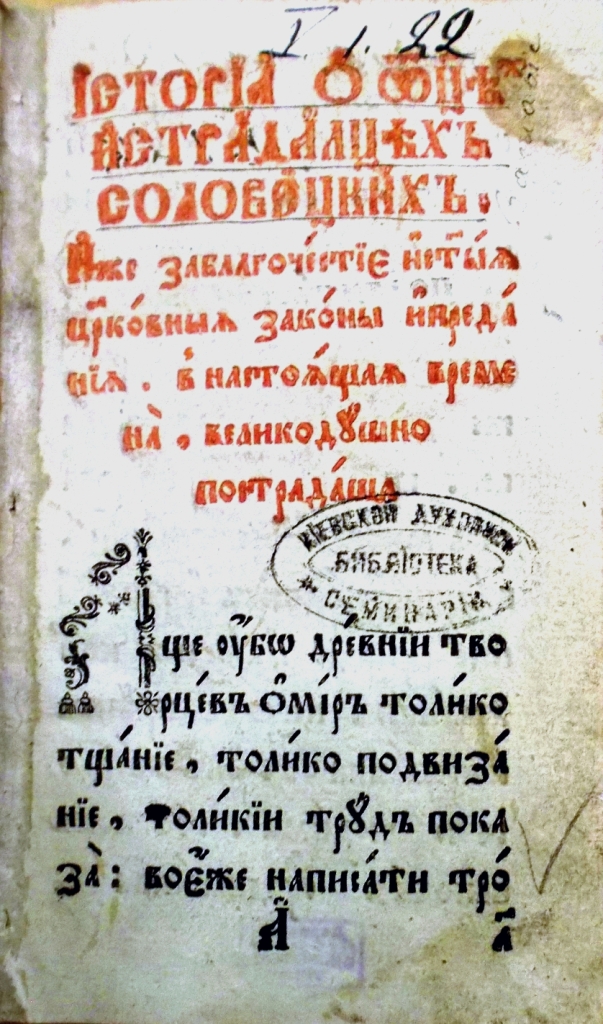 I. 1. 22
І҆СТОРІѦ Ѡ҆ ѾЦѢ́Х
И҆СТРАДА́ЛЦѢХЪ
СОЛОВЕ́ЦКИХЪ.
И҆́же заблагоче́стїе и҆ст҃ы́ѧ
цр҃ко́вныѧ зако́ны и҆преда́
нїѧ. в҆настоѧ́щаѧ време
на̀, великодꙋ́шно
пострада́ша
КІЕВСКОЙ ДУХОВНОЙ
БИБЛІОТЕКА
СЕМИНАРІИ
А҆ще ᲂу҆́бѡ дре́внїи тво
рце́въ Ѻ҆ми́ръ толи́ко
тща́нїе, толи́ко подвиза́
нїе, толи́кїи трꙋ́дъ пока
за̀: воє҆́же написа́ти тро́
а҃ а҃